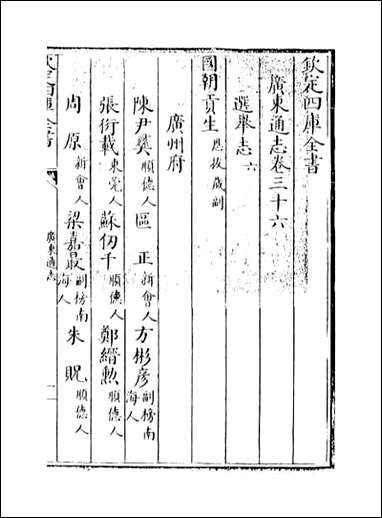 欽定四庫全書
廣東通志卷三十六
選舉志六
國朝貢生恩拔歲副
廣州府
陳尹龔順德人 區正新會人 方彬彦副榜南海人
張衍載東莞人 蘇仞千順德人 鄭縉勲順德人
周原新會人 梁嘉最副榜南海人 朱貺順德人
欽定四庫全書
廣東通志
一